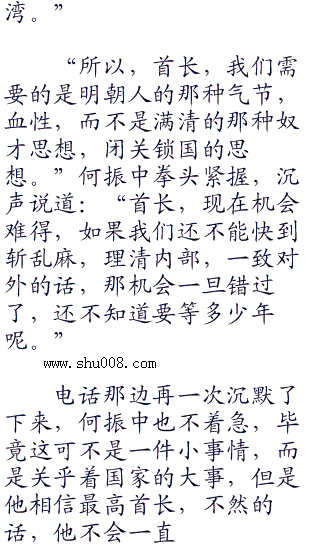 湾。”
“所以，首长，我们需
要的是明朝人的那种气节，
血性，而不是满清的那种奴
才思想，闭关锁国的思
想。”何振中拳头紧握，沉
声说道：“首长，现在机会
难得，如果我们还不能快到
斩乱麻，理清内部，一致对
外的话，那机会一旦错过
了，还不知道要等多少年
呢。”
www.shu008.com
电话那边再一次沉默了
下来，何振中也不着急，毕
竟这可不是一件小事情，而
是关乎着国家的大事，但是
他相信最高首长，不然的
话，他不会一直